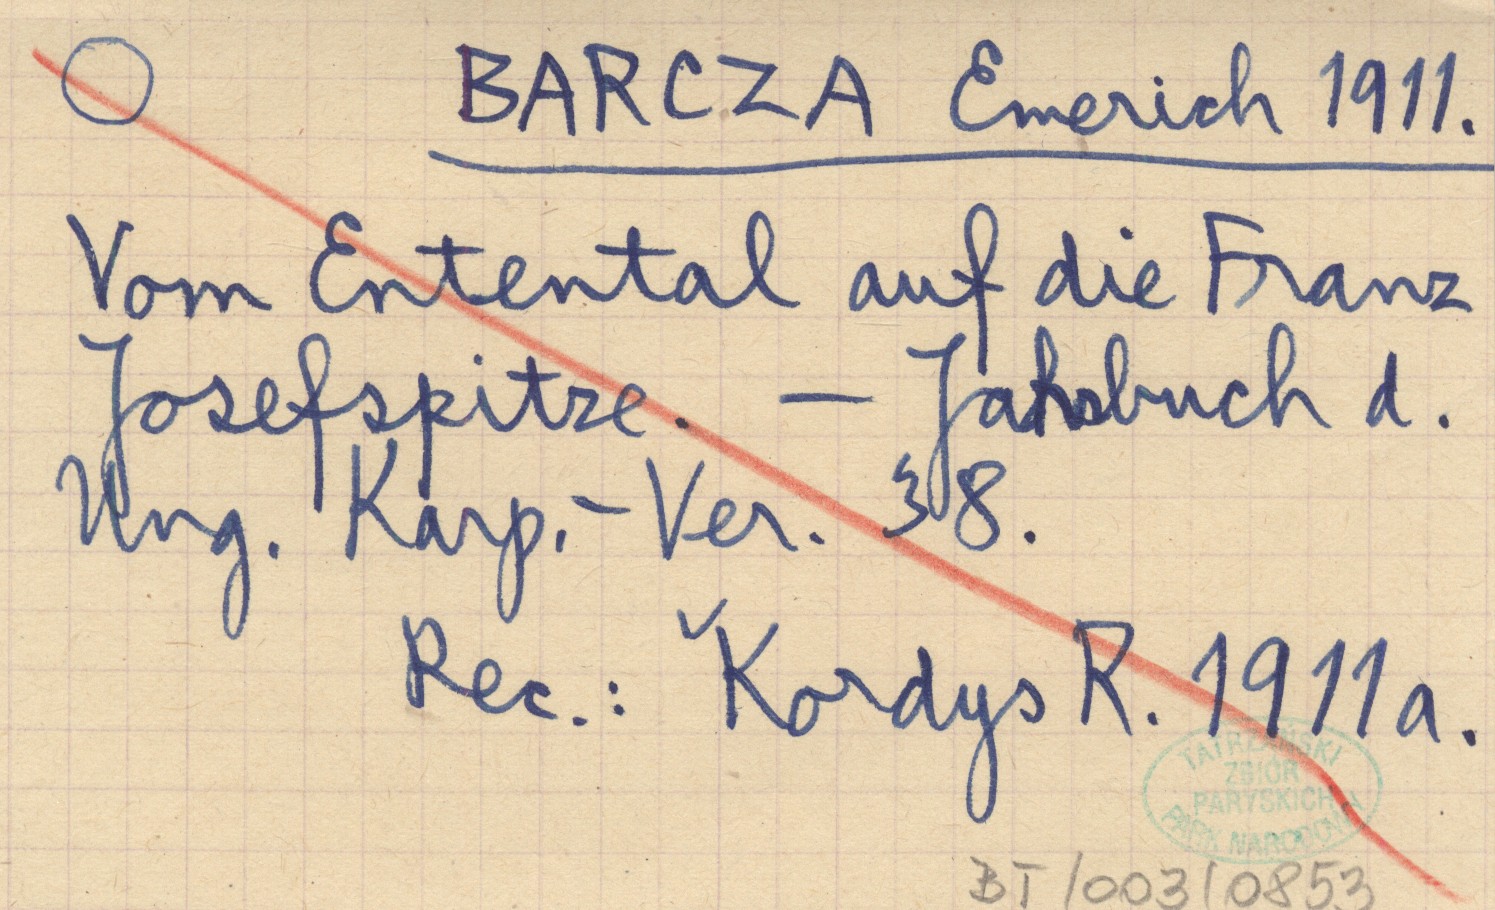 BARCZA Emerich 1911.
Vom Ententtal auf die Franz
Josefspitze. — Jahrbuch d.
Ung. Karp.-Ver. 38.
Rec.: Kordys R. 1911a.
TATRZAŃSKI
ZBIÓR
PARYSKICH
PARK NARODOWY
BT/003/0853